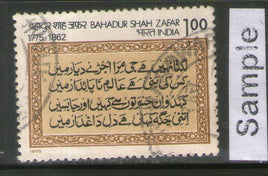 बहादुर शाह ज़फ़र BAHADUR SHAH ZAFAR 1.00
1775-1862 भारत INDIA
لگتا نہیں ہے جی مرا اجڑے دیار میں
کس کی بنی ہے عالم ناپائدار میں
کہدو ان حسرتوں سے کہیں اور جا بسیں
اتنی جگہ کہاں ہے دل داغدار میں
1975
Sample